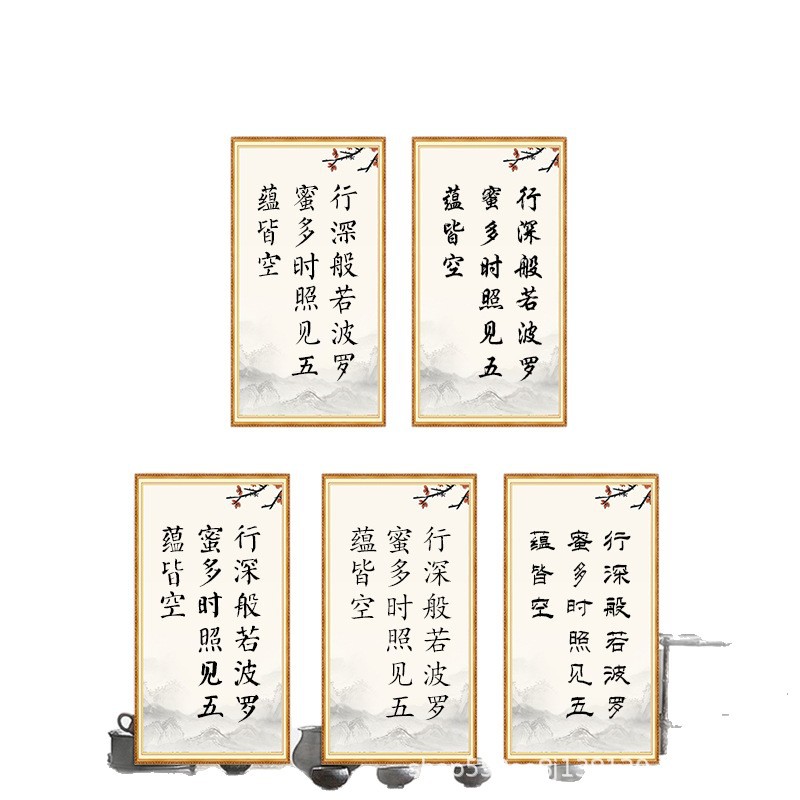 行深般若波罗
蜜多时照见五
蕴皆空
行深般若波罗
蜜多时照见五
蕴皆空
行深般若波罗
蜜多时照见五
蕴皆空
行深般若波罗
蜜多时照见五
蕴皆空
行深般若波罗
蜜多时照见五
蕴皆空